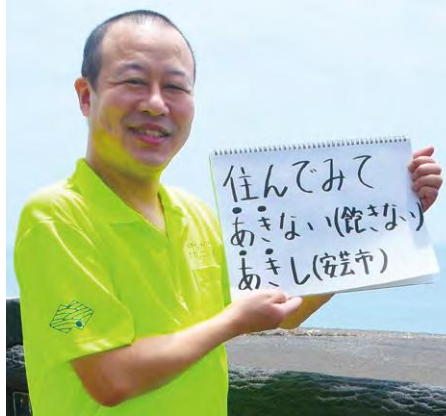 住んでみて
あきない(飽きない)
あきし(安芸市)